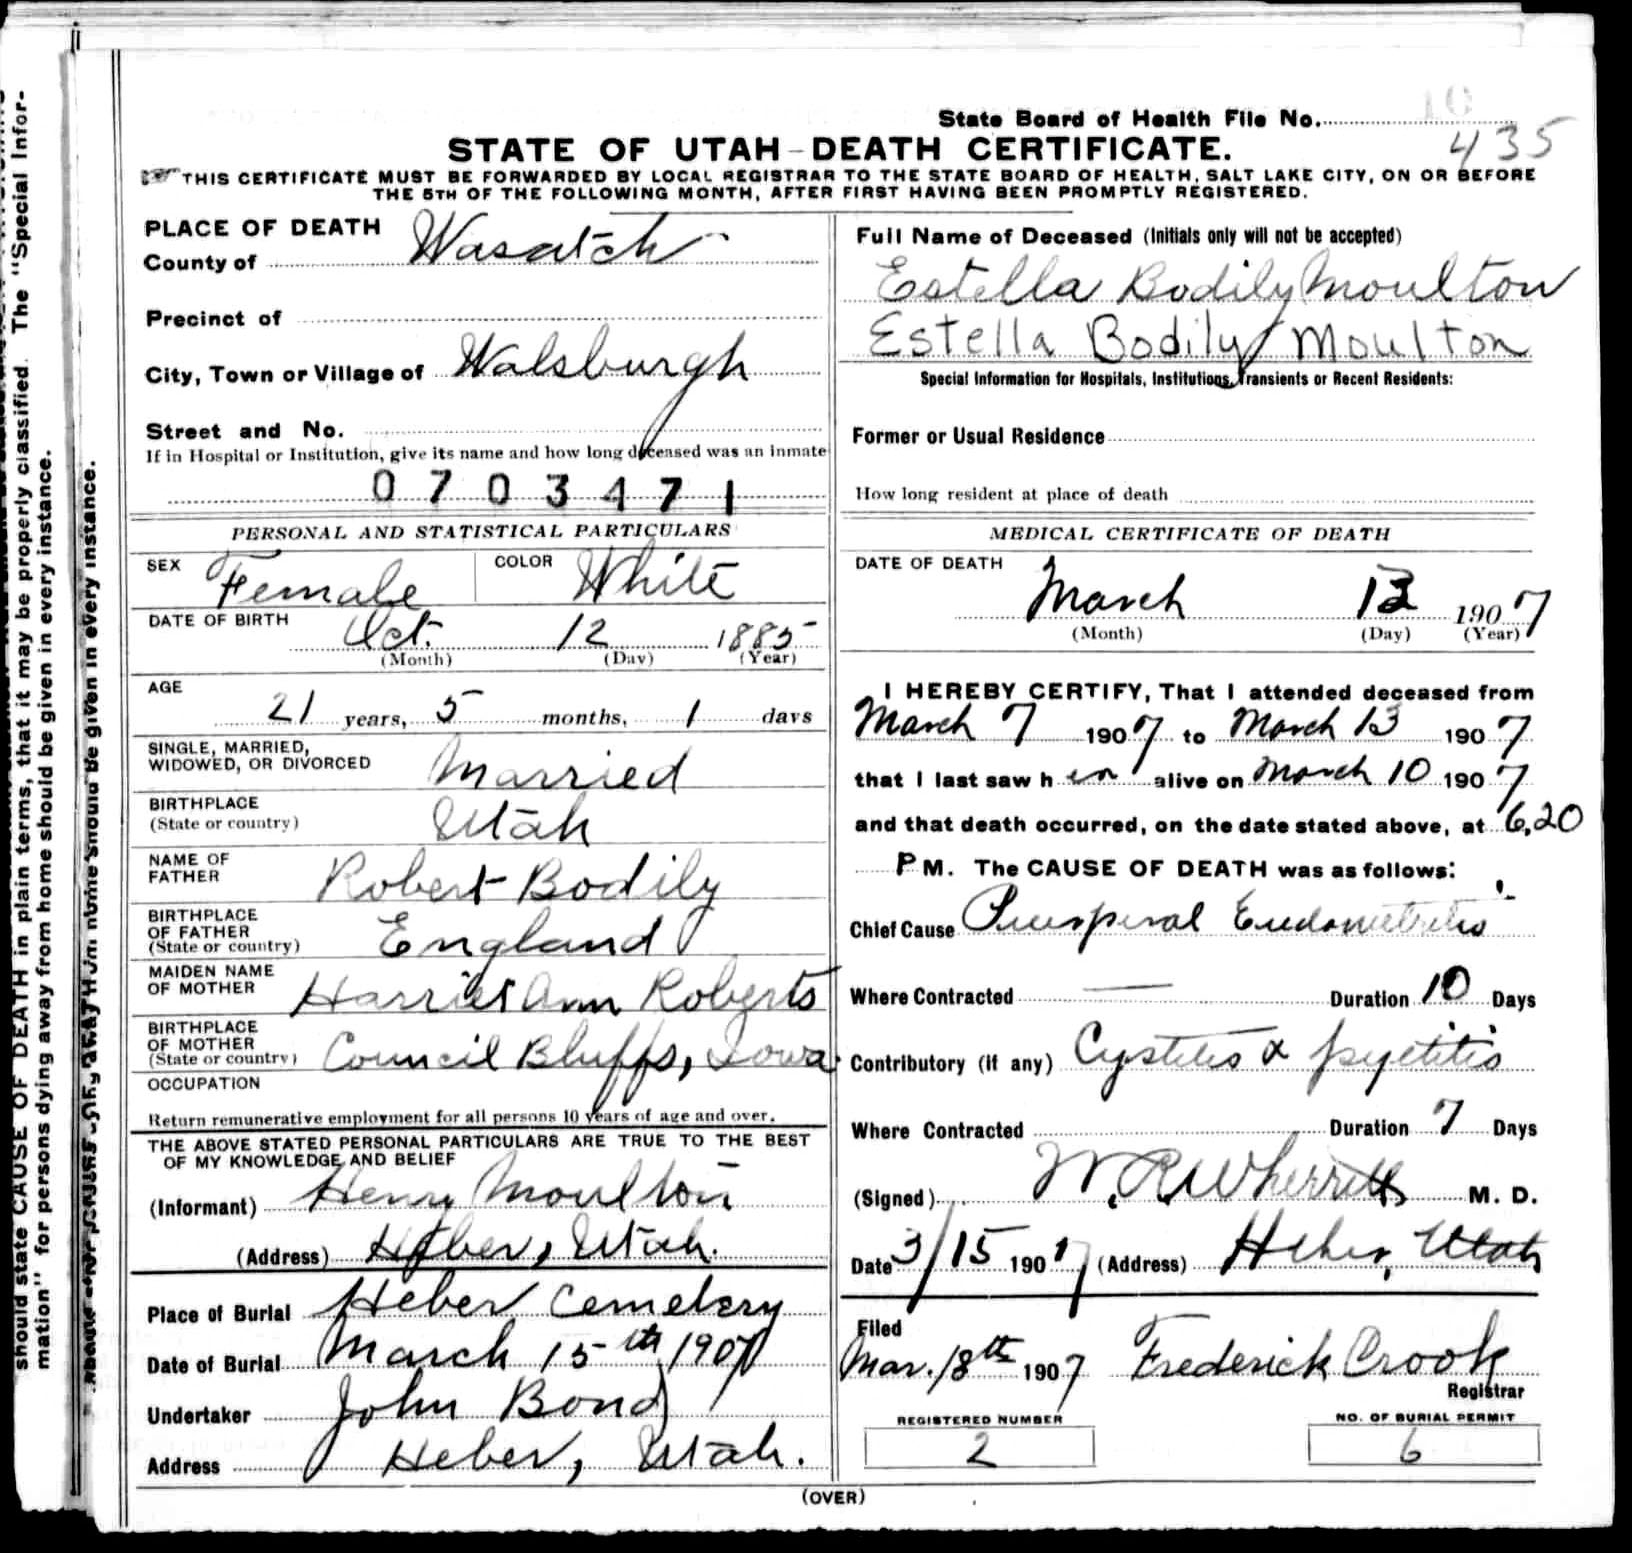 State Board of Health File No.
435
STATE OF UTAH-DEATH CERTIFICATE.
THIS CERTIFICATE MUST BE FORWARDED BY LOCAL REGISTRAR TO THE STATE BOARD OF HEALTH, SALT LAKE CITY, ON OR BEFORE
THE 5TH OF THE FOLLOWING MONTH, AFTER FIRST HAVING BEEN PROMPTLY REGISTERED.
PLACE OF DEATH
County of Wasatch
Precinct of
City, Town or Village of Walsburgh
Street and No.
If in Hospital or Institution, give its name and how long deceased was an inmate
0703471
PERSONAL AND STATISTICAL PARTICULARS
SEX Female COLOR White
DATE OF BIRTH Oct. 12 1885
(Month) (Day) (Year)
AGE
21 years, 5 months, 1 days
SINGLE, MARRIED,
WIDOWED, OR DIVORCED Married
BIRTHPLACE
(State or country) Utah
NAME OF
FATHER Robert Bodily
BIRTHPLACE
OF FATHER
(State or country) England
MAIDEN NAME
OF MOTHER Harriet Ann Roberts
BIRTHPLACE
OF MOTHER
(State or country) Council Bluffs, Iowa
OCCUPATION
Return remunerative employment for all persons 10 years of age and over.
THE ABOVE STATED PERSONAL PARTICULARS ARE TRUE TO THE BEST
OF MY KNOWLEDGE AND BELIEF
(Informant) Henry Moulton
(Address) Heber, Utah.
Place of Burial Heber Cemetery
Date of Burial March 15th 1907
Undertaker John Bond
Address Heber, Utah.
Full Name of Deceased (Initials only will not be accepted)
Estella Bodily Moulton
Estella Bodily Moulton
Special Information for Hospitals, Institutions, Transients or Recent Residents:
Former or Usual Residence
How long resident at place of death
MEDICAL CERTIFICATE OF DEATH
DATE OF DEATH
March 13 1907
(Month) (Day) (Year)
I HEREBY CERTIFY, That I attended deceased from
March 7 1907 to March 13 1907
that I last saw her alive on March 10 1907
and that death occurred, on the date stated above, at 6,20
PM. The CAUSE OF DEATH was as follows:
Chief Cause Puerperal Endometritis
Where Contracted — Duration 10 Days
Contributory (if any) Cystitis & pyelitis
Where Contracted Duration 7 Days
(Signed) W.R. Wherritt M. D.
Date 3/15 1907 (Address) Heber, Utah
Filed
Mar. 18th 1907 Frederick Crook
Registrar
REGISTERED NUMBER
2
NO. OF BURIAL PERMIT
6
(OVER)
should state CAUSE OF DEATH in plain terms, that it may be properly classified. The "Special Infor-
mation" for persons dying away from home should be given in every instance.
should be given in every instance.